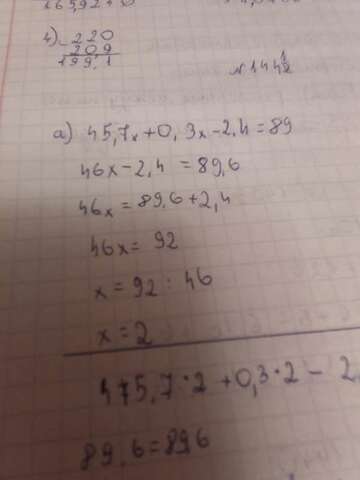 4) 220
20,9
199,1
N 1442
a) 45,7x+0,3x-2,4=89
46x-2,4=89,6
46x=89,6+2,4
46x=92
x=92:46
x=2
45,7·2+0,3·2-2
89,6=896